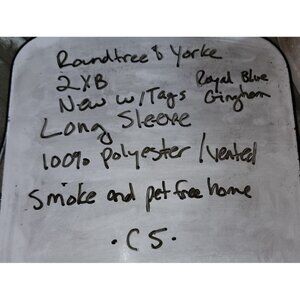 Roundtree & Yorke
2XB Royal Blue
New w/Tags Gingham
Long Sleeve
100% Polyester / Vented
Smoke and pet free home
• C5 •